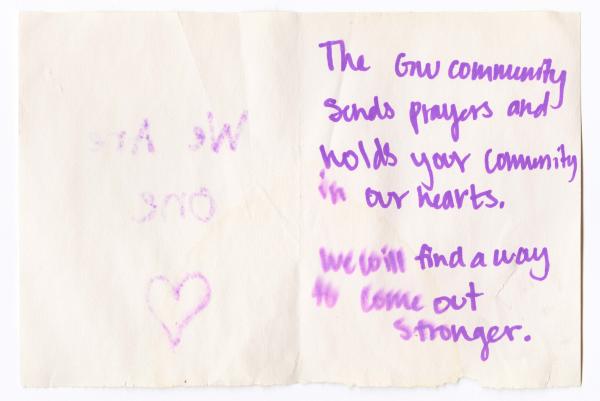 We Are
One
The GWU community
sends prayers and
holds your community
in our hearts.
We will find a way
to come out
stronger.